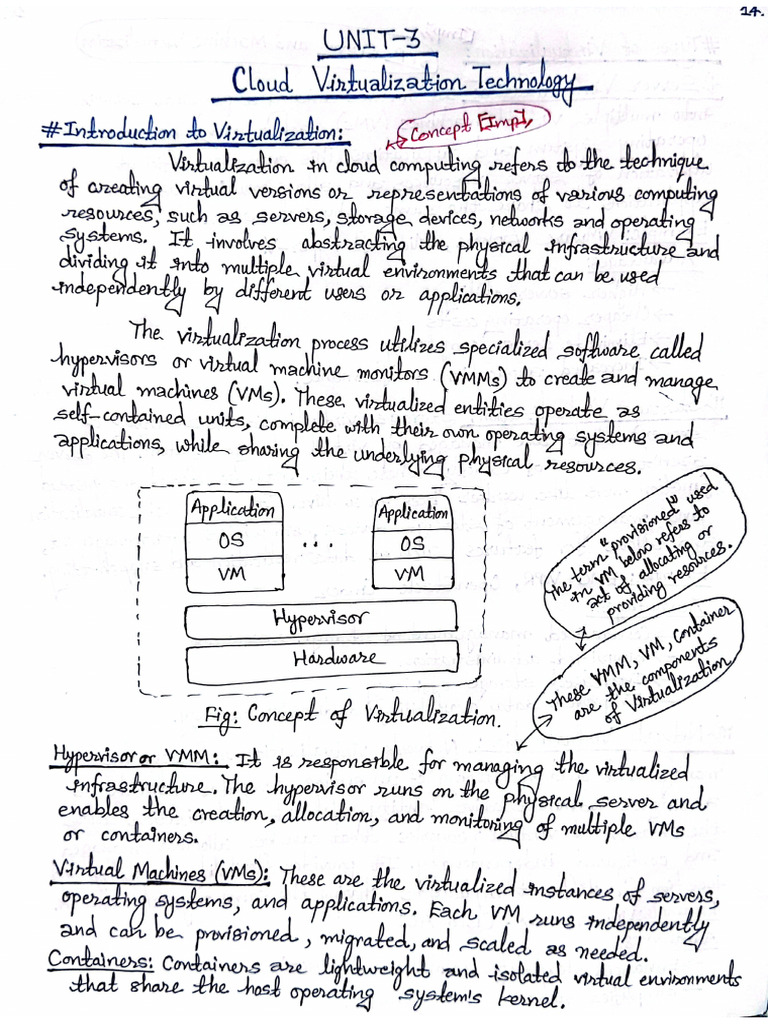 14.
UNIT-3
Cloud Virtualization Technology
#Introduction to Virtualization:
Concept [Imp],
Virtualization in cloud computing refers to the technique
of creating virtual versions or representations of various computing
resources, such as servers, storage devices, networks and operating
systems. It involves abstracting the physical infrastructure and
dividing it into multiple virtual environments that can be used
independently by different users or applications.
The virtualization process utilizes specialized software called
hypervisors or virtual machine monitors (VMMs) to create and manage
virtual machines (VMs). These virtualized entities operate as
self-contained units, complete with their own operating systems and
applications, while sharing the underlying physical resources.
Application
OS
VM
...
Application
OS
VM
Hypervisor
Hardware
Fig: Concept of Virtualization.
The term "provisioned" used
in VM below refers to
act of allocating or
providing resources.
These VMM, VM, Container
are the components
of Virtualization
Hypervisor or VMM: It is responsible for managing the virtualized
infrastructure. The hypervisor runs on the physical server and
enables the creation, allocation, and monitoring of multiple VMs
or containers.
Virtual Machines (VMs): These are the virtualized instances of servers,
operating systems, and applications. Each VM runs independently
and can be provisioned, migrated, and scaled as needed.
Containers: Containers are lightweight and isolated virtual environments
that share the host operating system's kernel.